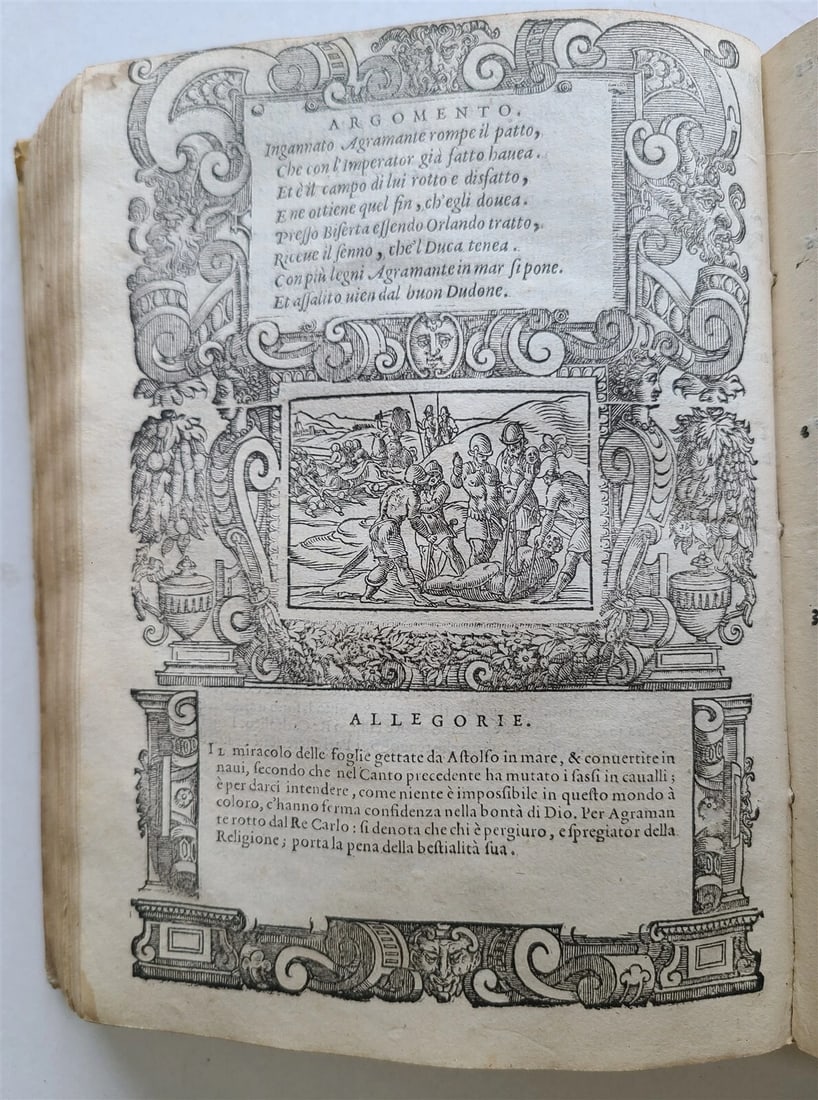 ARGOMENTO.
Ingannato Agramante rompe il patto,
Che con l'Imperator già fatto hauea.
Et è il campo di lui rotto e disfatto,
E ne ottiene quel fin, ch'egli douea.
Preſſo Biſerta eſſendo Orlando tratto,
Riceue il ſenno, che'l Duca tenea.
Con più legni Agramante in mar ſi pone.
Et aſſalito uien dal buon Dudone.
ALLEGORIE.
IL miracolo delle foglie gettate da Aſtolfo in mare, & conuertite in
naui, ſecondo che nel Canto precedente ha mutato i ſaſſi in caualli;
è per darci intendere, come niente è impoſſibile in queſto mondo à
coloro, c'hanno ferma confidenza nella bontà di Dio. Per Agraman
te rotto dal Re Carlo: ſi denota che chi è pergiuro, e ſpregiator della
Religione; porta la pena della beſtialità ſua.